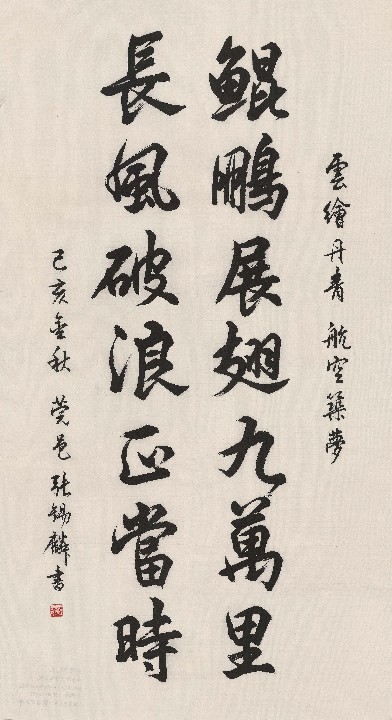 雲繪丹青 航空築夢
鯤鵬展翅九萬里
長風破浪正當時
己亥金秋 莞邑 張錫麟書